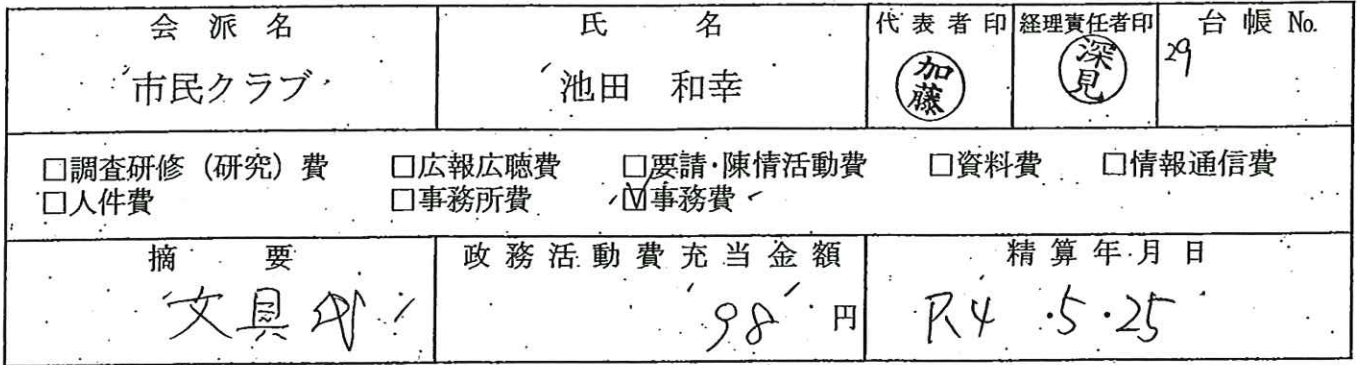 会派名 氏名 代表者印 経理責任者印 台帳 No.
市民クラブ 池田 和幸 加藤 深見 29
□調査研修（研究）費 □広報広聴費 □要請・陳情活動費 □資料費 □情報通信費
□人件費 □事務所費 ☑事務費
摘要 政務活動費充当金額 精算年月日
文具代 98 円 R4.5.25